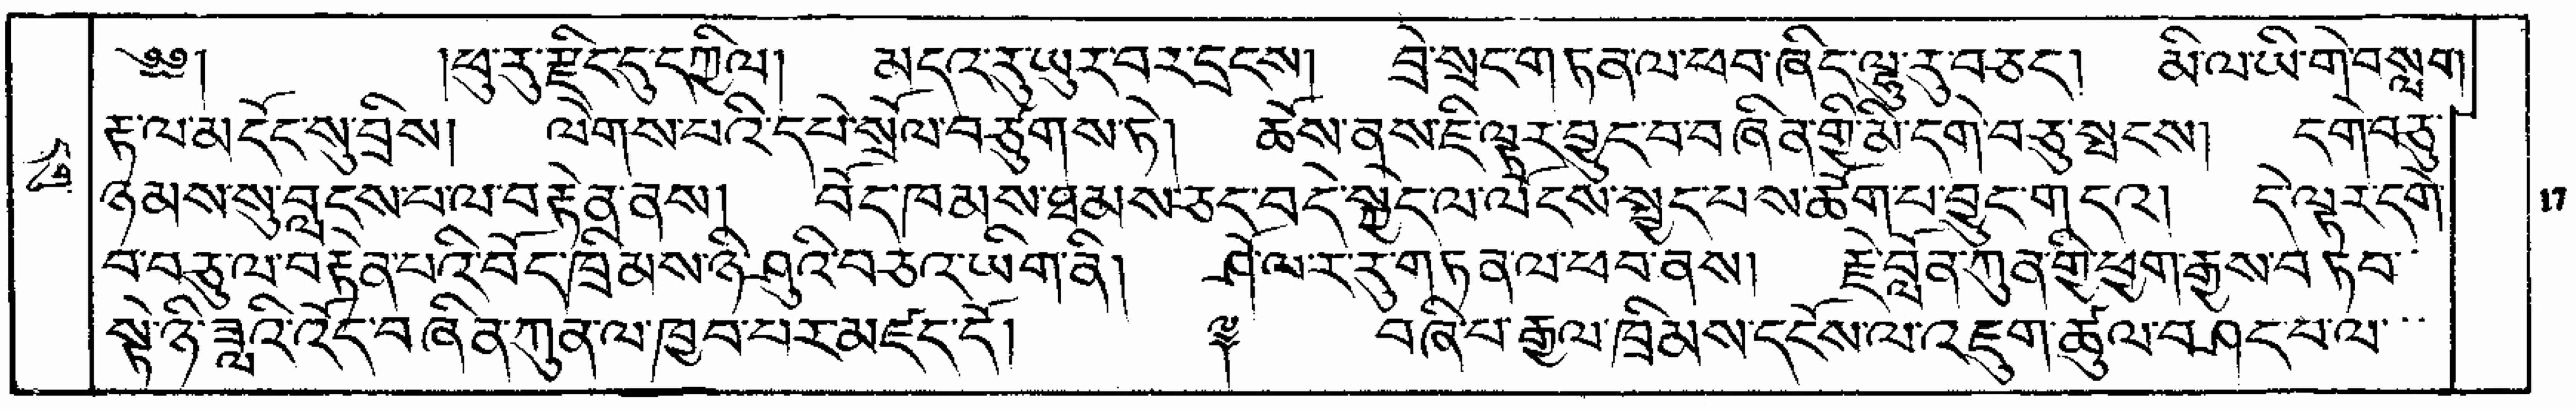 ༄༅། །ཕུ་རུ་རྫིང་དུ་དཀྱིལ། མདའ་རུ་ཡུར་བར་དྲངས། བྲེ་སྲང་གཏན་ལ་ཕབ་ཞིང་ལྷུ་རུ་བཅད། མི་ལ་ཡི་གེ་བསླབ།
རྟ་ལ་མདོང་སུ་བྲིས། ལེགས་པའི་དཔེ་སྲོལ་བཙུགས་ཏེ། ཆོས་ནས་ཇི་ལྟར་བྱུང་བ་བཞིན་གྱི་མི་དགེ་བཅུ་སྤངས། དགེ་བཅུ་
ཉམས་སུ་བླངས་པ་ལ་བརྟེན་ནས། བོད་ཁམས་ཐམས་ཅད་བདེ་སྐྱིད་ལ་ལོངས་སྤྱད་པས་ཚོག་པ་བྱུང་གདའ། དེ་ལྟར་དགེ་
བ་བཅུ་ལ་བརྟེན་པའི་བོད་ཁྲིམས་ཉི་ཤུའི་བཅའ་ཡིག་ནི། ཤོ་མ་ར་རུ་གཏན་ལ་ཕབ་ནས། རྗེ་བློན་ཀུན་གྱི་ཕྱག་རྒྱས་བཏབ་
སྟེ་ཉི་ཟླའི་འོད་བཞིན་ཀུན་ལ་ཁྱབ་པར་མཛད་དོ། ༔ བཞི་པ་རྒྱལ་ཁྲིམས་དངོས་ལ་འཇུག་ཚུལ་བཤད་པ་ལ་
17